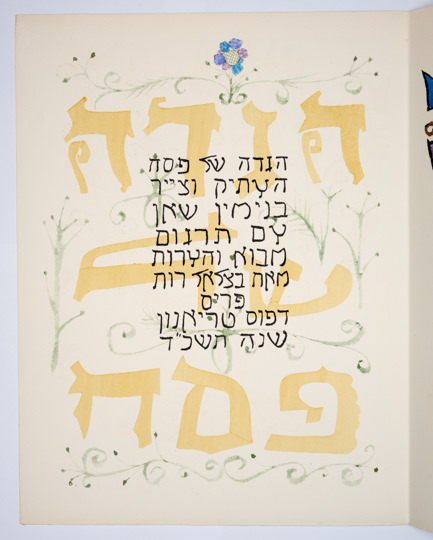 הגדה
של
פסח
הגדה של פסח
העתיק וצייר
בנימין שאן
עם תרגום
מבוא והערות
מאת בצלאל רות
פריס
דפוס טריאנון
שנה תשכ״ד